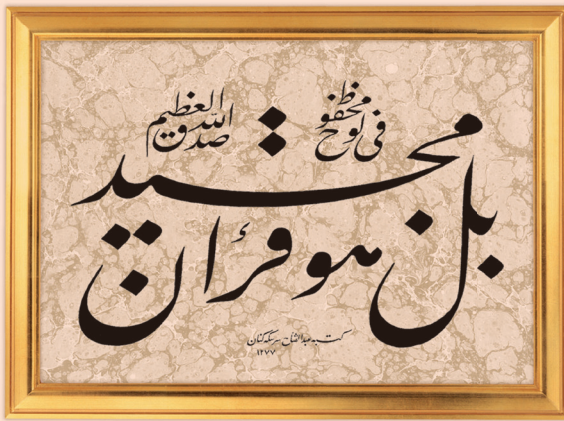 بل هو قرآن مجيد
في لوح محفوظ
صدق الله العظيم
كتبه عبدالفتاح سر سكه كنان
١٢٧٧